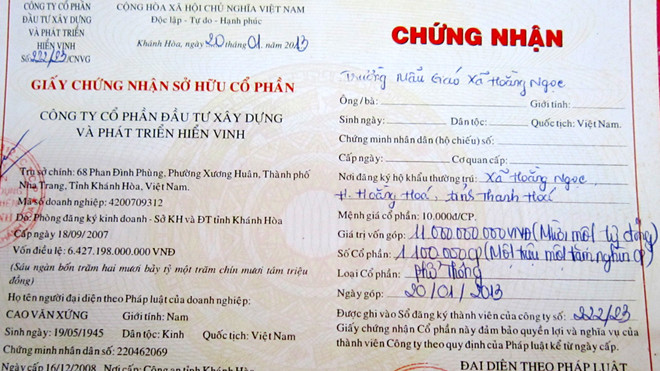 CÔNG TY CỔ PHẦN
ĐẦU TƯ XÂY DỰNG
VÀ PHÁT TRIỂN
HIỂN VINH
Số: 222/23/CNVG
CỘNG HÒA XÃ HỘI CHỦ NGHĨA VIỆT NAM
Độc lập - Tự do - Hạnh phúc
Khánh Hòa, ngày 20 tháng 01 năm 2013
GIẤY CHỨNG NHẬN SỞ HỮU CỔ PHẦN
CÔNG TY CỔ PHẦN ĐẦU TƯ XÂY DỰNG
VÀ PHÁT TRIỂN HIỂN VINH
Trụ sở chính: 68 Phan Đình Phùng, Phường Xương Huân, Thành phố
Nha Trang, Tỉnh Khánh Hòa, Việt Nam.
Mã số doanh nghiệp: 4200709312
Do: Phòng đăng ký kinh doanh - Sở KH và ĐT tỉnh Khánh Hòa
Cấp ngày 18/09/2007
Vốn điều lệ: 6.427.198.000.000 VNĐ
(Sáu ngàn bốn trăm hai mươi bảy tỷ một trăm chín mươi tám triệu
đồng)
Họ tên người đại diện theo Pháp luật của doanh nghiệp:
CAO VĂN XỨNG Giới tính: Nam
Sinh ngày: 19/05/1945 Dân tộc: Kinh Quốc tịch: Việt Nam
Chứng minh nhân dân số: 220462069
Cấp ngày 16/12/2008 Nơi cấp: Công an tỉnh Khánh Hòa
CHỨNG NHẬN
Trường Mẫu Giáo Xã Hoằng Ngọc
Ông/bà: Giới tính:
Sinh ngày: Dân tộc: Quốc tịch: Việt Nam.
Chứng minh nhân dân (hộ chiếu) số:
Cấp ngày: Cơ quan cấp:
Nơi đăng ký hộ khẩu thường trú: Xã Hoằng Ngọc,
H. Hoằng Hoá, tỉnh Thanh Hoá
Mệnh giá cổ phần: 10.000đ/CP.
Giá trị vốn góp: 11.000.000.000VNĐ (Mười một tỷ đồng)
Số Cổ phần: 1.100.000CP (Một triệu một trăm nghìn cp)
Loại Cổ phần: Phổ Thông
Ngày góp: 20/01/2013
Được ghi vào Sổ đăng ký thành viên của công ty số: 222/23
Giấy chứng nhận Cổ phần này đảm bảo quyền lợi và nghĩa vụ của
thành viên Công ty theo quy định của Pháp luật kể từ ngày cấp.
ĐẠI DIỆN THEO PHÁP LUẬT